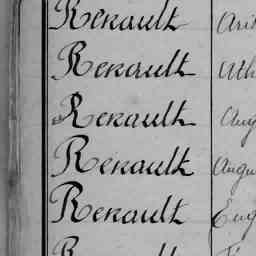 Renault
Renault
Renault Aug
Renault Augu
Renault Eug